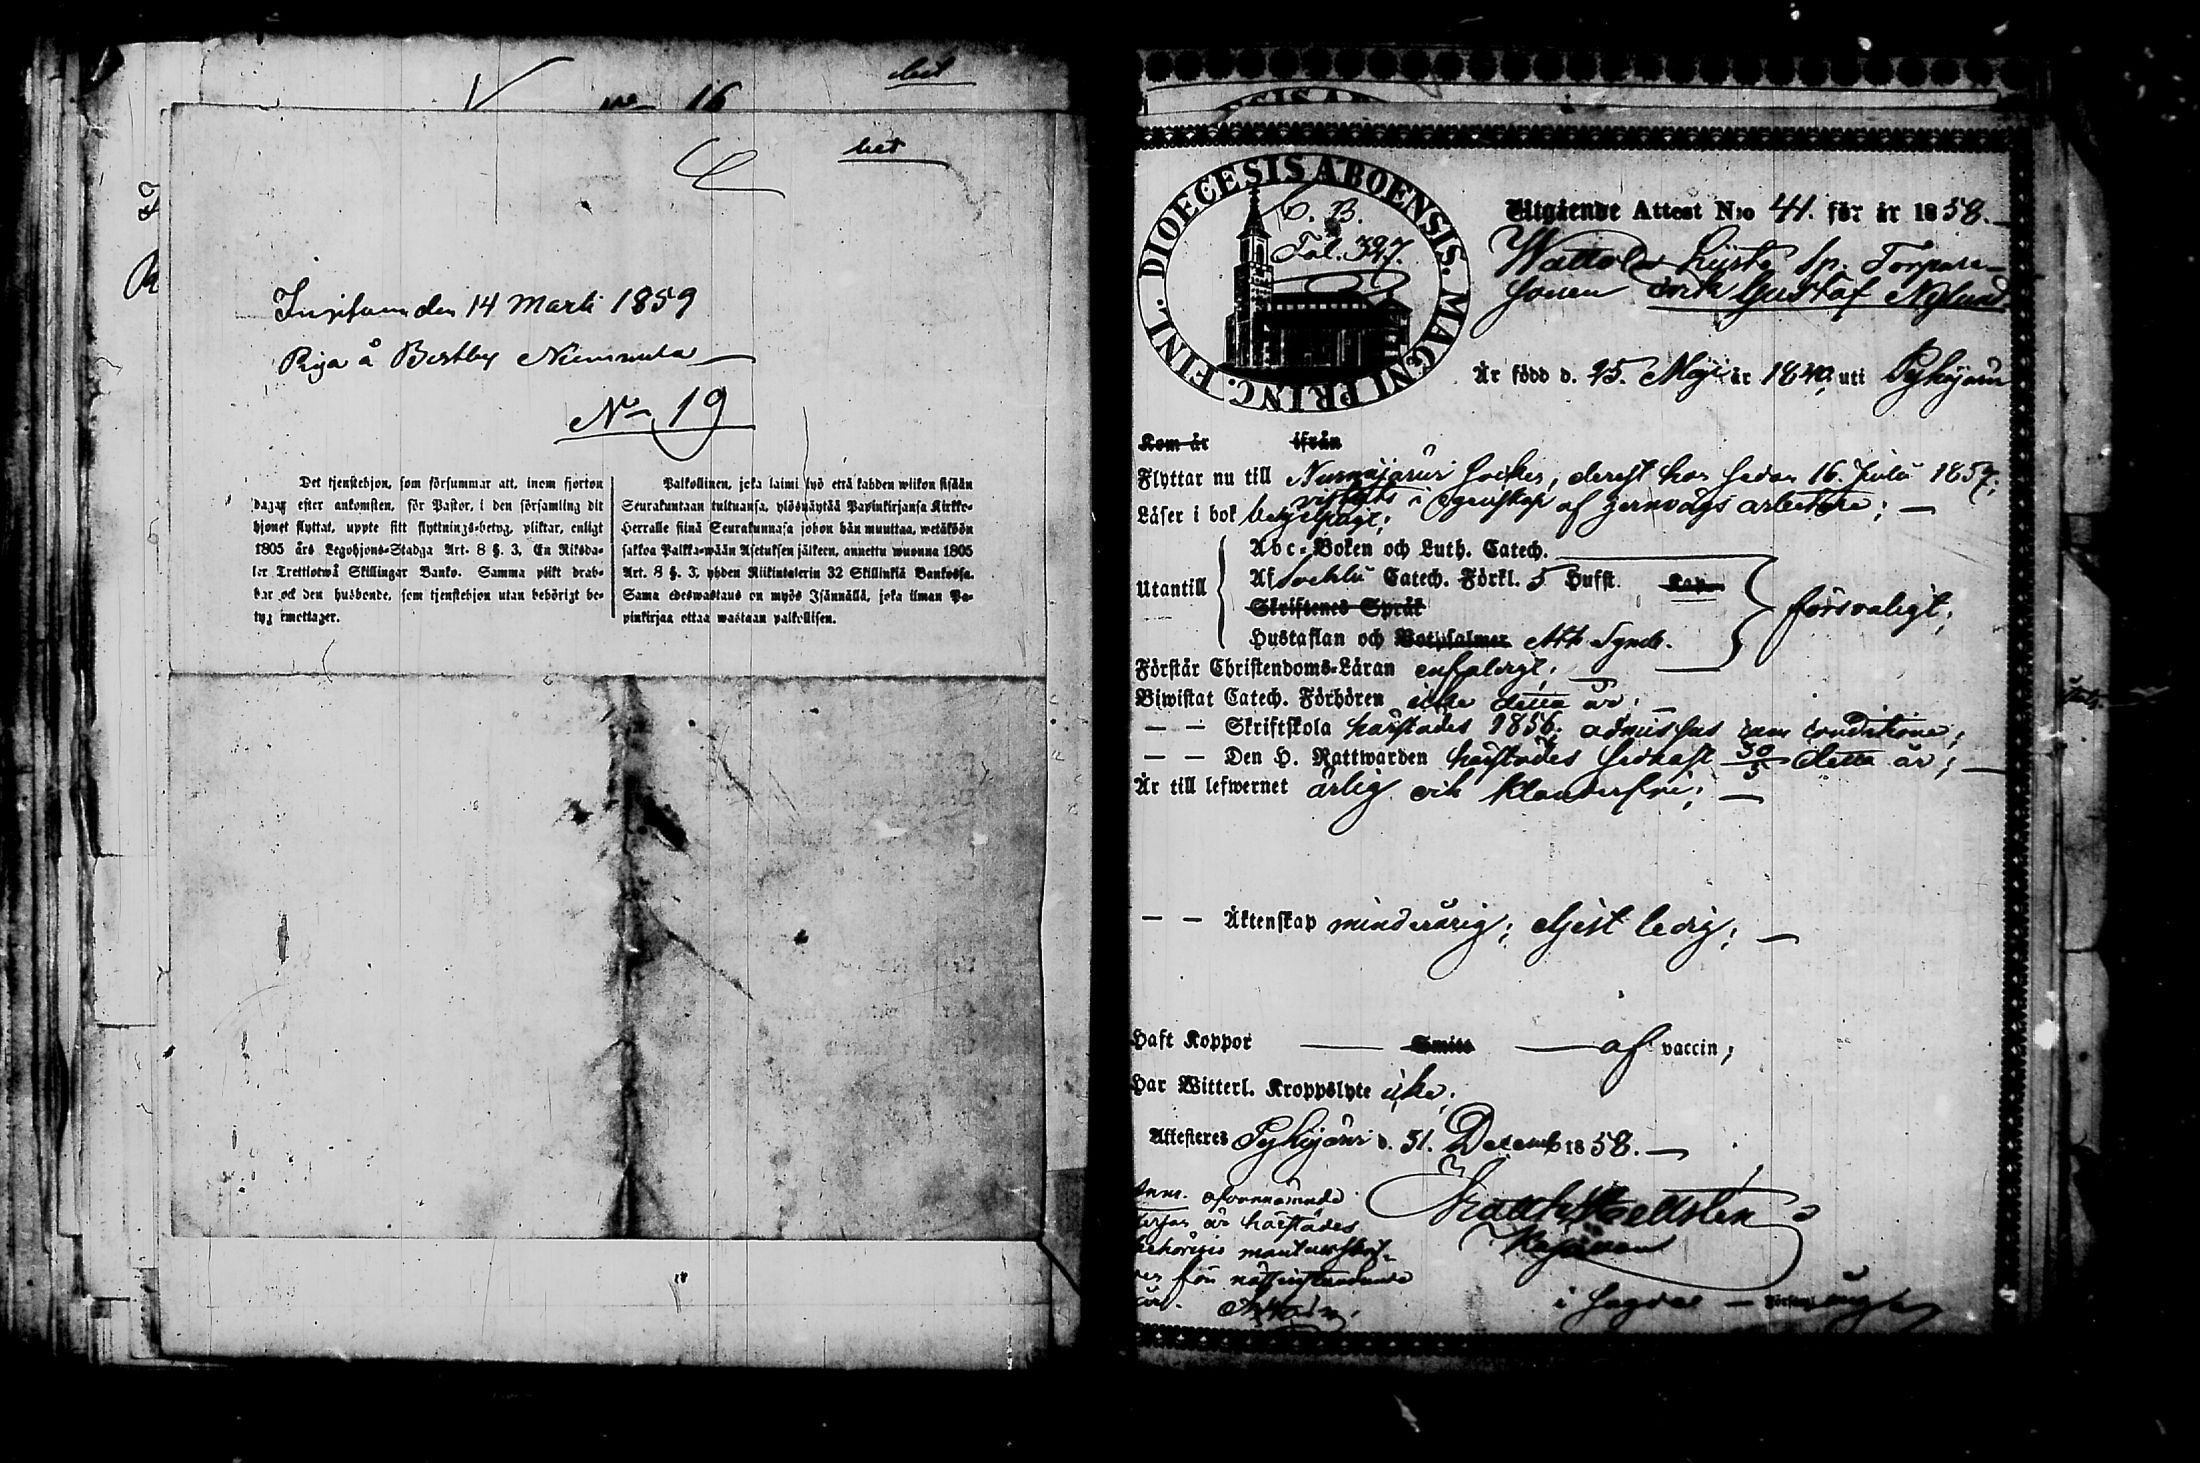 bet
No 16
bet
Insitum den 14 Martii 1859
Piga å Bostby Nummela
No 19
Det tjenstehjon, som försummar att, inom fjorton
dagar efter ankomsten, för Pastor, i den församling dit
hjonet flyttat, uppte sitt flyttnings-betyg, pliktar, enligt
1805 års Legohjons-Stadga Art. 8 §. 3, En Riksda-
ler Trettiotwå Skillingar Banko. Samma plikt drab-
bar ock den husbonde, som tjenstehjon utan behörigt be-
tyg emottager.
Palkollinen, joka laimi lyö että kahden wiikon sisään
Seurakuntaan tultuansa, ylösnäytää Papinkirjansa Kirkko-
Herralle siinä Seurakunnasa johon hän muuttaa, wetäköön
sakkoa Palkka-wään Asetuksen jälkeen, annettu wuonna 1805
Art. 8 §. 3, yhden Riikintalerin 32 Skillinkiä Bankossa.
Sama edeswastaus on myös Isännällä, joka ilman Pa-
pinkirjaa ottaa wastaan palkollisen.
DIOECESIS ABOENSIS. MAGNI PRINC. FINL.
C. B.
Fol. 327.
Utgående Attest N:o 41. för år 1858.
Torpare-
sonen Erik Gustaf Nylund
Är född d. 25. Maji år 1840, uti Pyhäjärvi
Kom år ifrån
Flyttar nu till Nurmijärvi socken, derest han sedan 16. Julii 1857,
vistats i egenskap af jernvägs arbetare;
Läser i bok begripligt;
Abc-Boken och Luth. Catech.
Utantill
Af Catech. Förkl. 5 Hufst. Cap.
Skriftenes Språk
försvarligt;
Hustaflan och Botpsalmer Ath. Symb.
Förstår Christendoms-Läran enfaldigt;
Biwistat Catech. Förhören icke detta år;
— — Skriftskola härstädes 1856; admissus cum conditione;
— — Den H. Nattwarden härstädes sednast 30/5 detta år;
Är till lefwernet ärlig och klanderfri;
— — Äktenskap minderårig; eljest ledig;
Haft Koppor Smitt af vaccin;
Har Witterl. Kroppslyte icke.
Attesteres Pyhäjärvi d. 31. Decemb 1858.
Anm. ofvannämnde
är härstädes
behörigen mantalsskrif-
för nästinstundande
år.
Hellsten